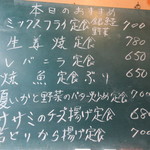 本日のおすすめ
ミックスフライ定食 700
生姜焼定食 780
レバニラ定食 650
焼魚定食ぶり 650
夏いかと野菜のバター炒め定食 700
ササミのチーズ揚げ定食 680
若どりなら揚げ定食 700